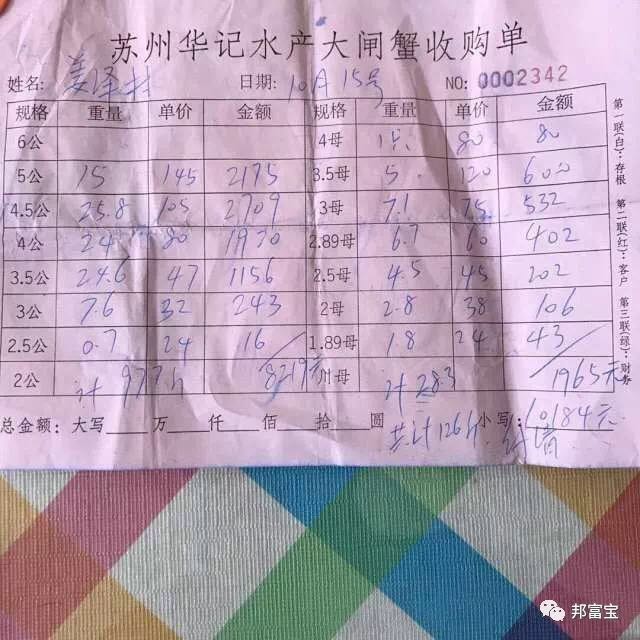 苏州华记水产大闸蟹收购单
姓名: 姜泽林 日期: 10月15号 NO: 0002342
规格 重量 单价 金额 规格 重量 单价 金额
6公 4母 1只 80 80
5公 15 145 2175 3.5母 5 120 600
4.5公 25.8 105 2709 3母 7.1 75 532
4公 24 80 1920 2.89母 6.7 60 402
3.5公 24.6 47 1156 2.5母 4.5 45 202
3公 7.6 32 243 2母 2.8 38 106
2.5公 0.7 24 16 1.89母 1.8 24 43
2公 计 97.7斤 8219元 母 计 28.3 1965元
总金额: 大写 万 仟 佰 拾 圆 小写: 10184元
共计126斤
第一联(白): 存根 第二联(红): 客户 第三联(绿): 财务
邦富宝